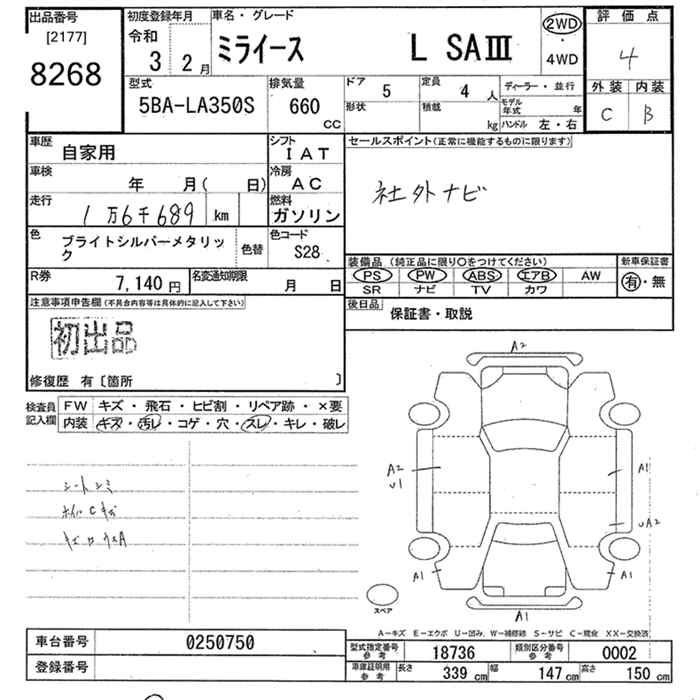 出品番号
[2177]
8268
初度登録年月
令和
3 2月
車名・グレード
ミライース L SAⅢ
2WD
・
4WD
評価点
4
外装 内装
C B
型式
5BA-LA350S
排気量
660
cc
ドア 5
形状
定員 4人
積載 kg
ディーラー・並行
モデル年式 年
ハンドル 左・右
車歴
自家用
シフト
IAT
車検
年 月( 日)
冷房
AC
走行
1万6千689 km
燃料
ガソリン
色
ブライトシルバーメタリック
色替
色コード
S28
R券
7,140円
名変通知期限
月 日
セールスポイント(正常に機能するものに限ります)
社外ナビ
装備品 (純正品に限り○をつけてください)
PS PW ABS エアB AW
SR ナビ TV カワ
新車保証書
有・無
後日品
保証書・取説
注意事項申告欄(不具合内容等は具体的に記入して下さい)
初出品
修復歴 有〔箇所 〕
検査員記入欄
FW キズ・飛石・ヒビ割・リペア跡・×要
内装 キズ・汚レ・コゲ・穴・スレ・キレ・破レ
シートシミ
ホイルCキズ
A2
A2
U1
A1
UA2
A1
A1
A1
スペア
A−キズ E−エクボ U−凹み、W−補修跡 S−サビ C−腐食 XX−交換済
車台番号 0250750
登録番号
型式指定番号参考 18736
類別区分番号参考 0002
車庫証明用参考 長さ 339cm 幅 147cm 高さ 150cm